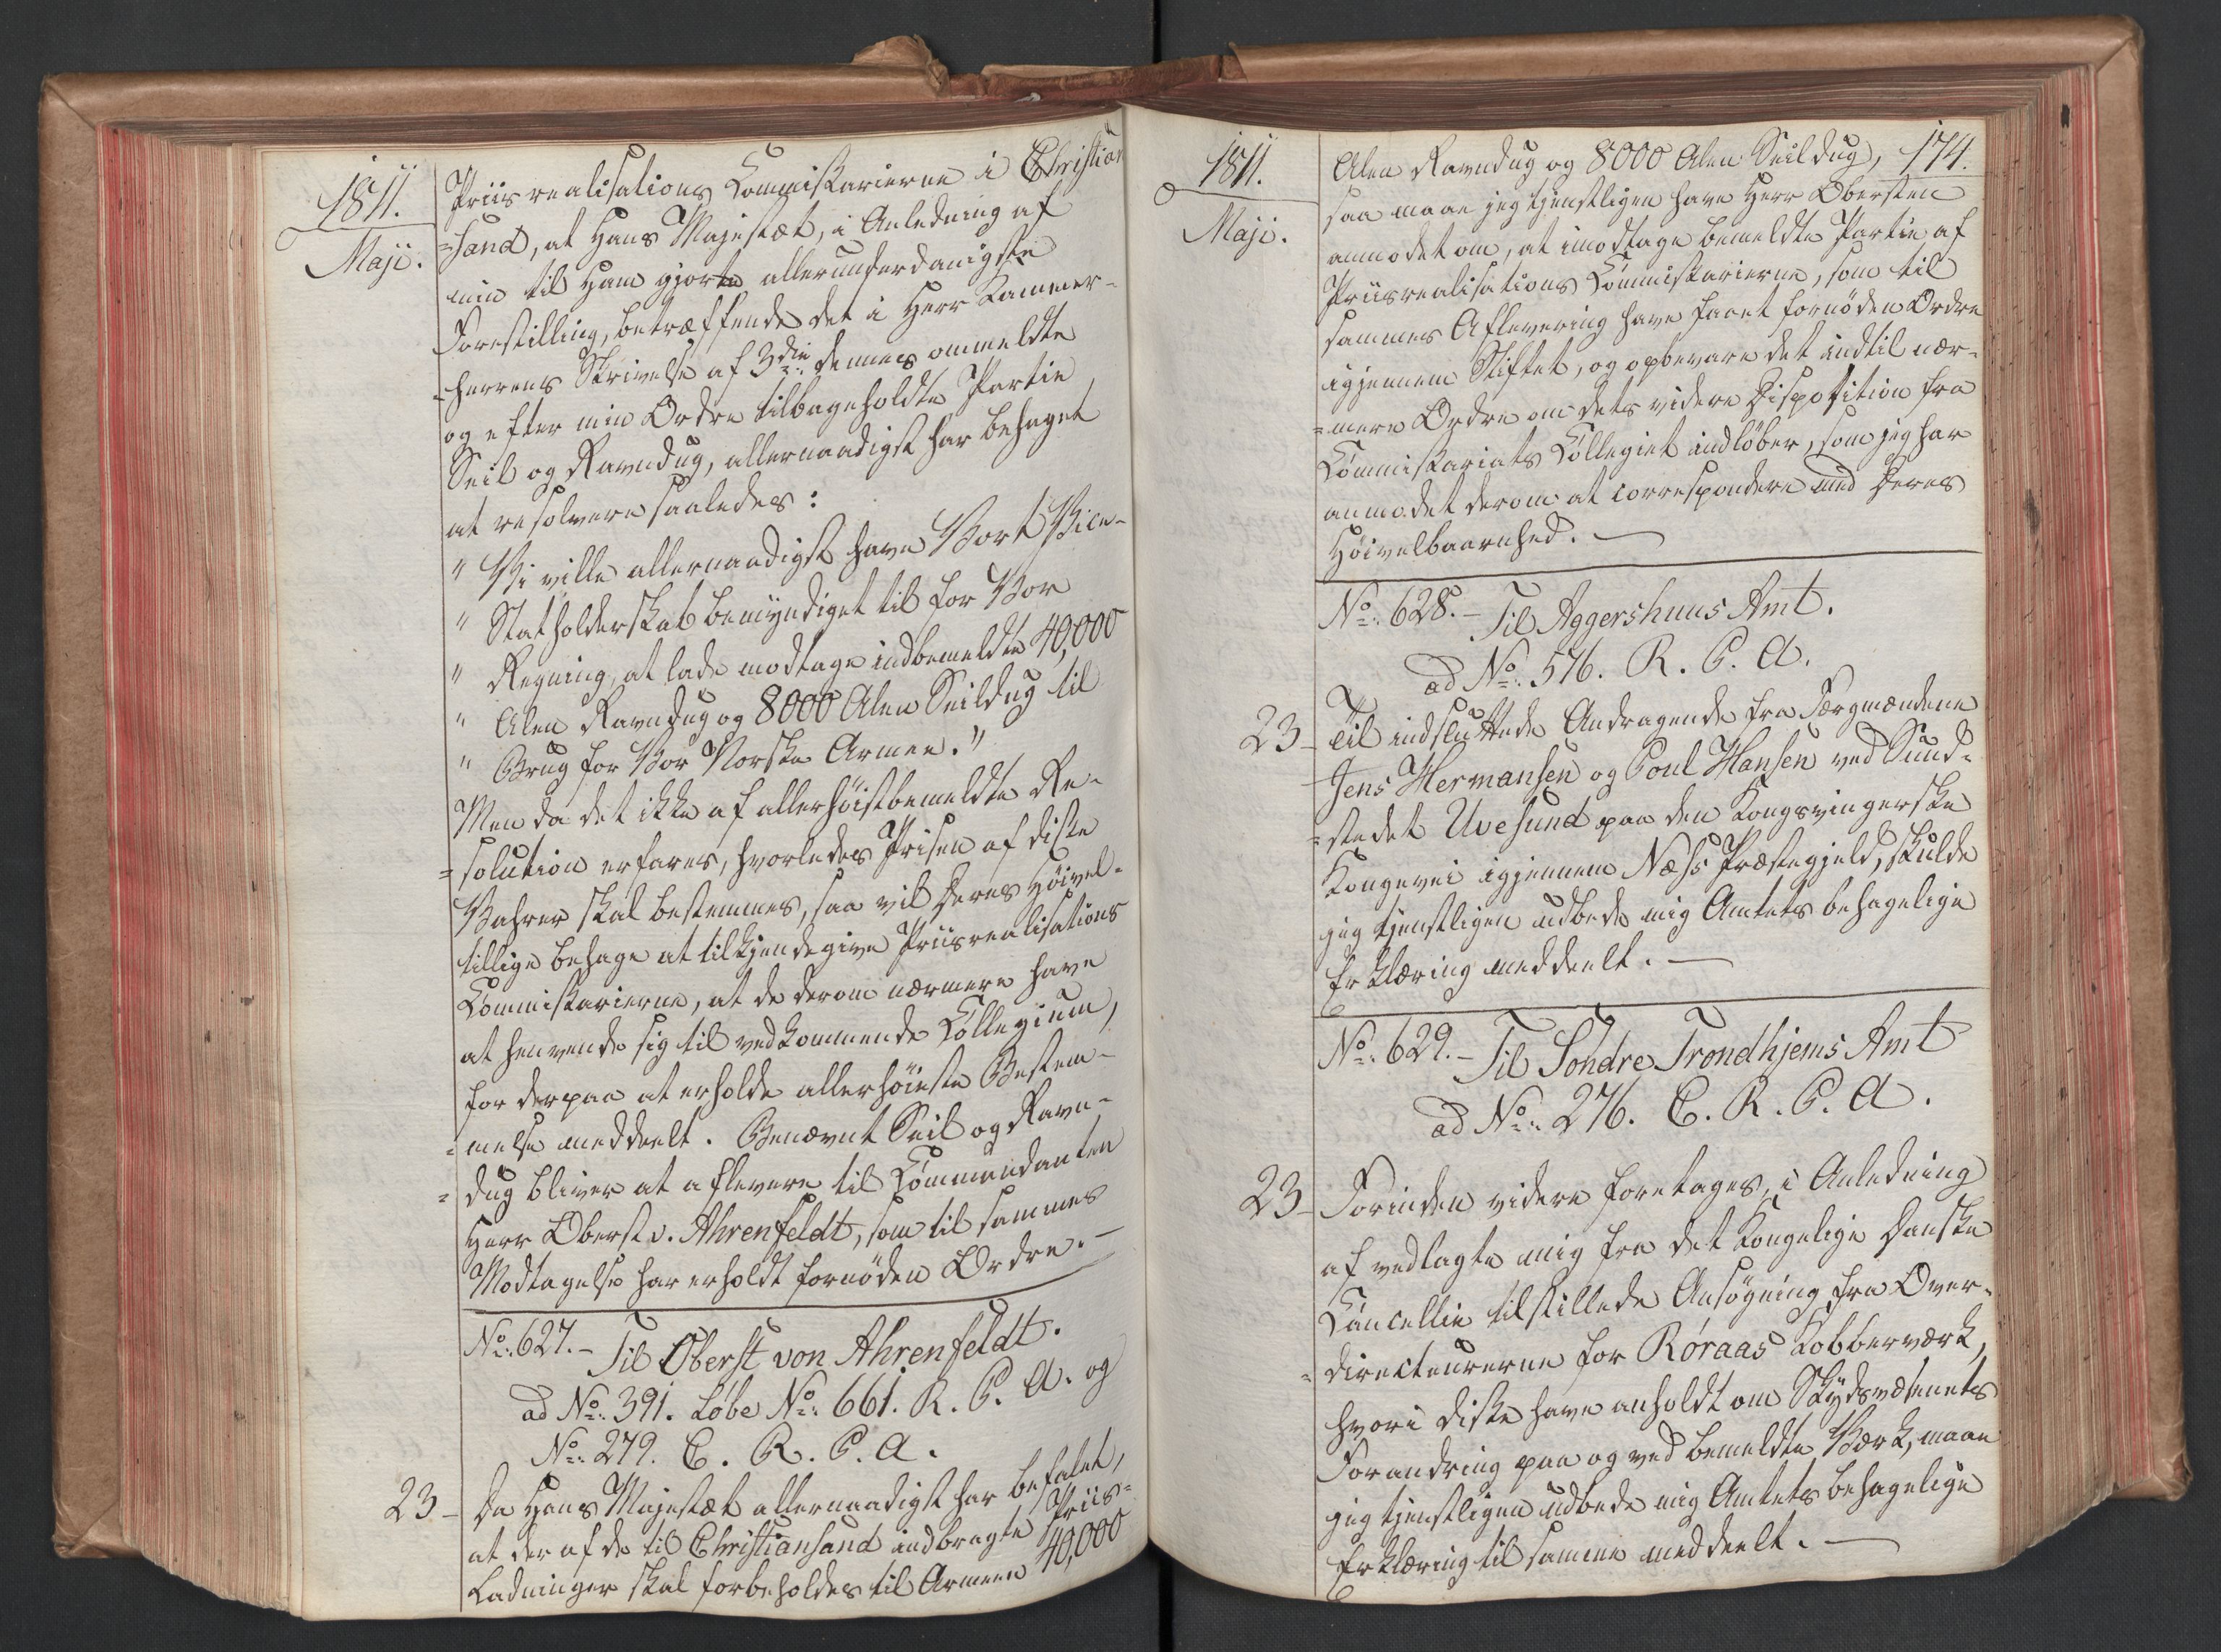 1811.
Maji.
Priisrealisations Commiskarierne i Christian
=sand, at Hans Majestæt, i Anledning af
min til Ham gjorte allerunderdanigste
Forestilling, betræffende det i Herr Kammer-
=herrens Skrivelse af 3die dennes ommeldte
og efter min Ordre tilbageholdte Partie
Seil og Ravndug, allernaadigst har behaget
at resolvere saaledes:
" Vi ville allernaadigst have Vort Vice-
" Statholderskab bemyndiget til for Vor
" Regning, at lade modtage indbemeldte 40,000
" Alen Ravndug og 8000 Alen Seildug til
" Brug for Vor Norske Armee."
Men da det ikke af allerhöistbemeldte Re-
=solution erfares, hvorledes Prisen af diske
Vahrer skal bestemmes, saa vil Deres Höivel-
tillige behage at tilkjendegive Priisrealisations
Commiskarierne, at de derom nærmere have
at henvende sig til vedkommende Collegium,
for derpaa at erholde allerhöieste Bestem-
=melse meddeelt. Benævnt Seil og Ravn-
=dug bliver at aflevere til Commandanten
Herr Oberst v. Ahrenfeldt, som til sammes
Modtagelse har erholdt fornöden Ordre. -
No. 627. - Til Oberst von Ahrenfeldt.
ad No. 391. Løbe No. 661. R. P. A. og
No. 279. C. R. P. A.
23- Da Hans Majestæt allernaadigst har befalet,
at der af de til Christiansand indbragte Priis-
Ladninger skal forbeholdes til Armeen 40,000
1811.
Maji.
174.
Alen Ravndug og 8000 Alen Seildug,
saa maae jeg tjenstligen have Herr Obersten
anmodet om, at imodtage bemeldte Partie af
Priisrealisations Commiskarierne, som til
sammes Aflevering have faaet fornöden Ordre
igjennem Stiftet, og opbevare det indtil nær-
=mere Ordre om dets videre Disposition fra
Commiskariats Collegiet indlöber, som jeg har
anmodet derom at correspondere med Deres
Höivelbaarenhed. -
No. 628. - Til Aggershuus Amt.
ad No. 576. R. P. A.
23- Til indsluttede Andragende fra Færgmændene
Jens Hermansen og Poul Hansen ved Sund-
=stedet Uvesund paa den Kongsvingerske
Kongevei igjennem Næss Præstegjeld, skulde
jeg tjenstligen udbede mig Amtets behagelige
Erklæring meddeelt. -
No. 629. - Til Söndre Trondhjems Amt
ad No. 276. C. R. P. A.
23- Forinden videre foretages, i Anledning
af vedlagte mig fra det Kongelige Danske
Cancellie tilstillede Ansögning fra Over-
=directeurerne for Røraas Kobberværk,
hvori diske have anholdt om Skydsvæsenets
Forandring paa og ved bemeldte Værk, maae
jeg tjenstligen udbede mig Amtets behagelige
Erklæring til samme meddeelt. -